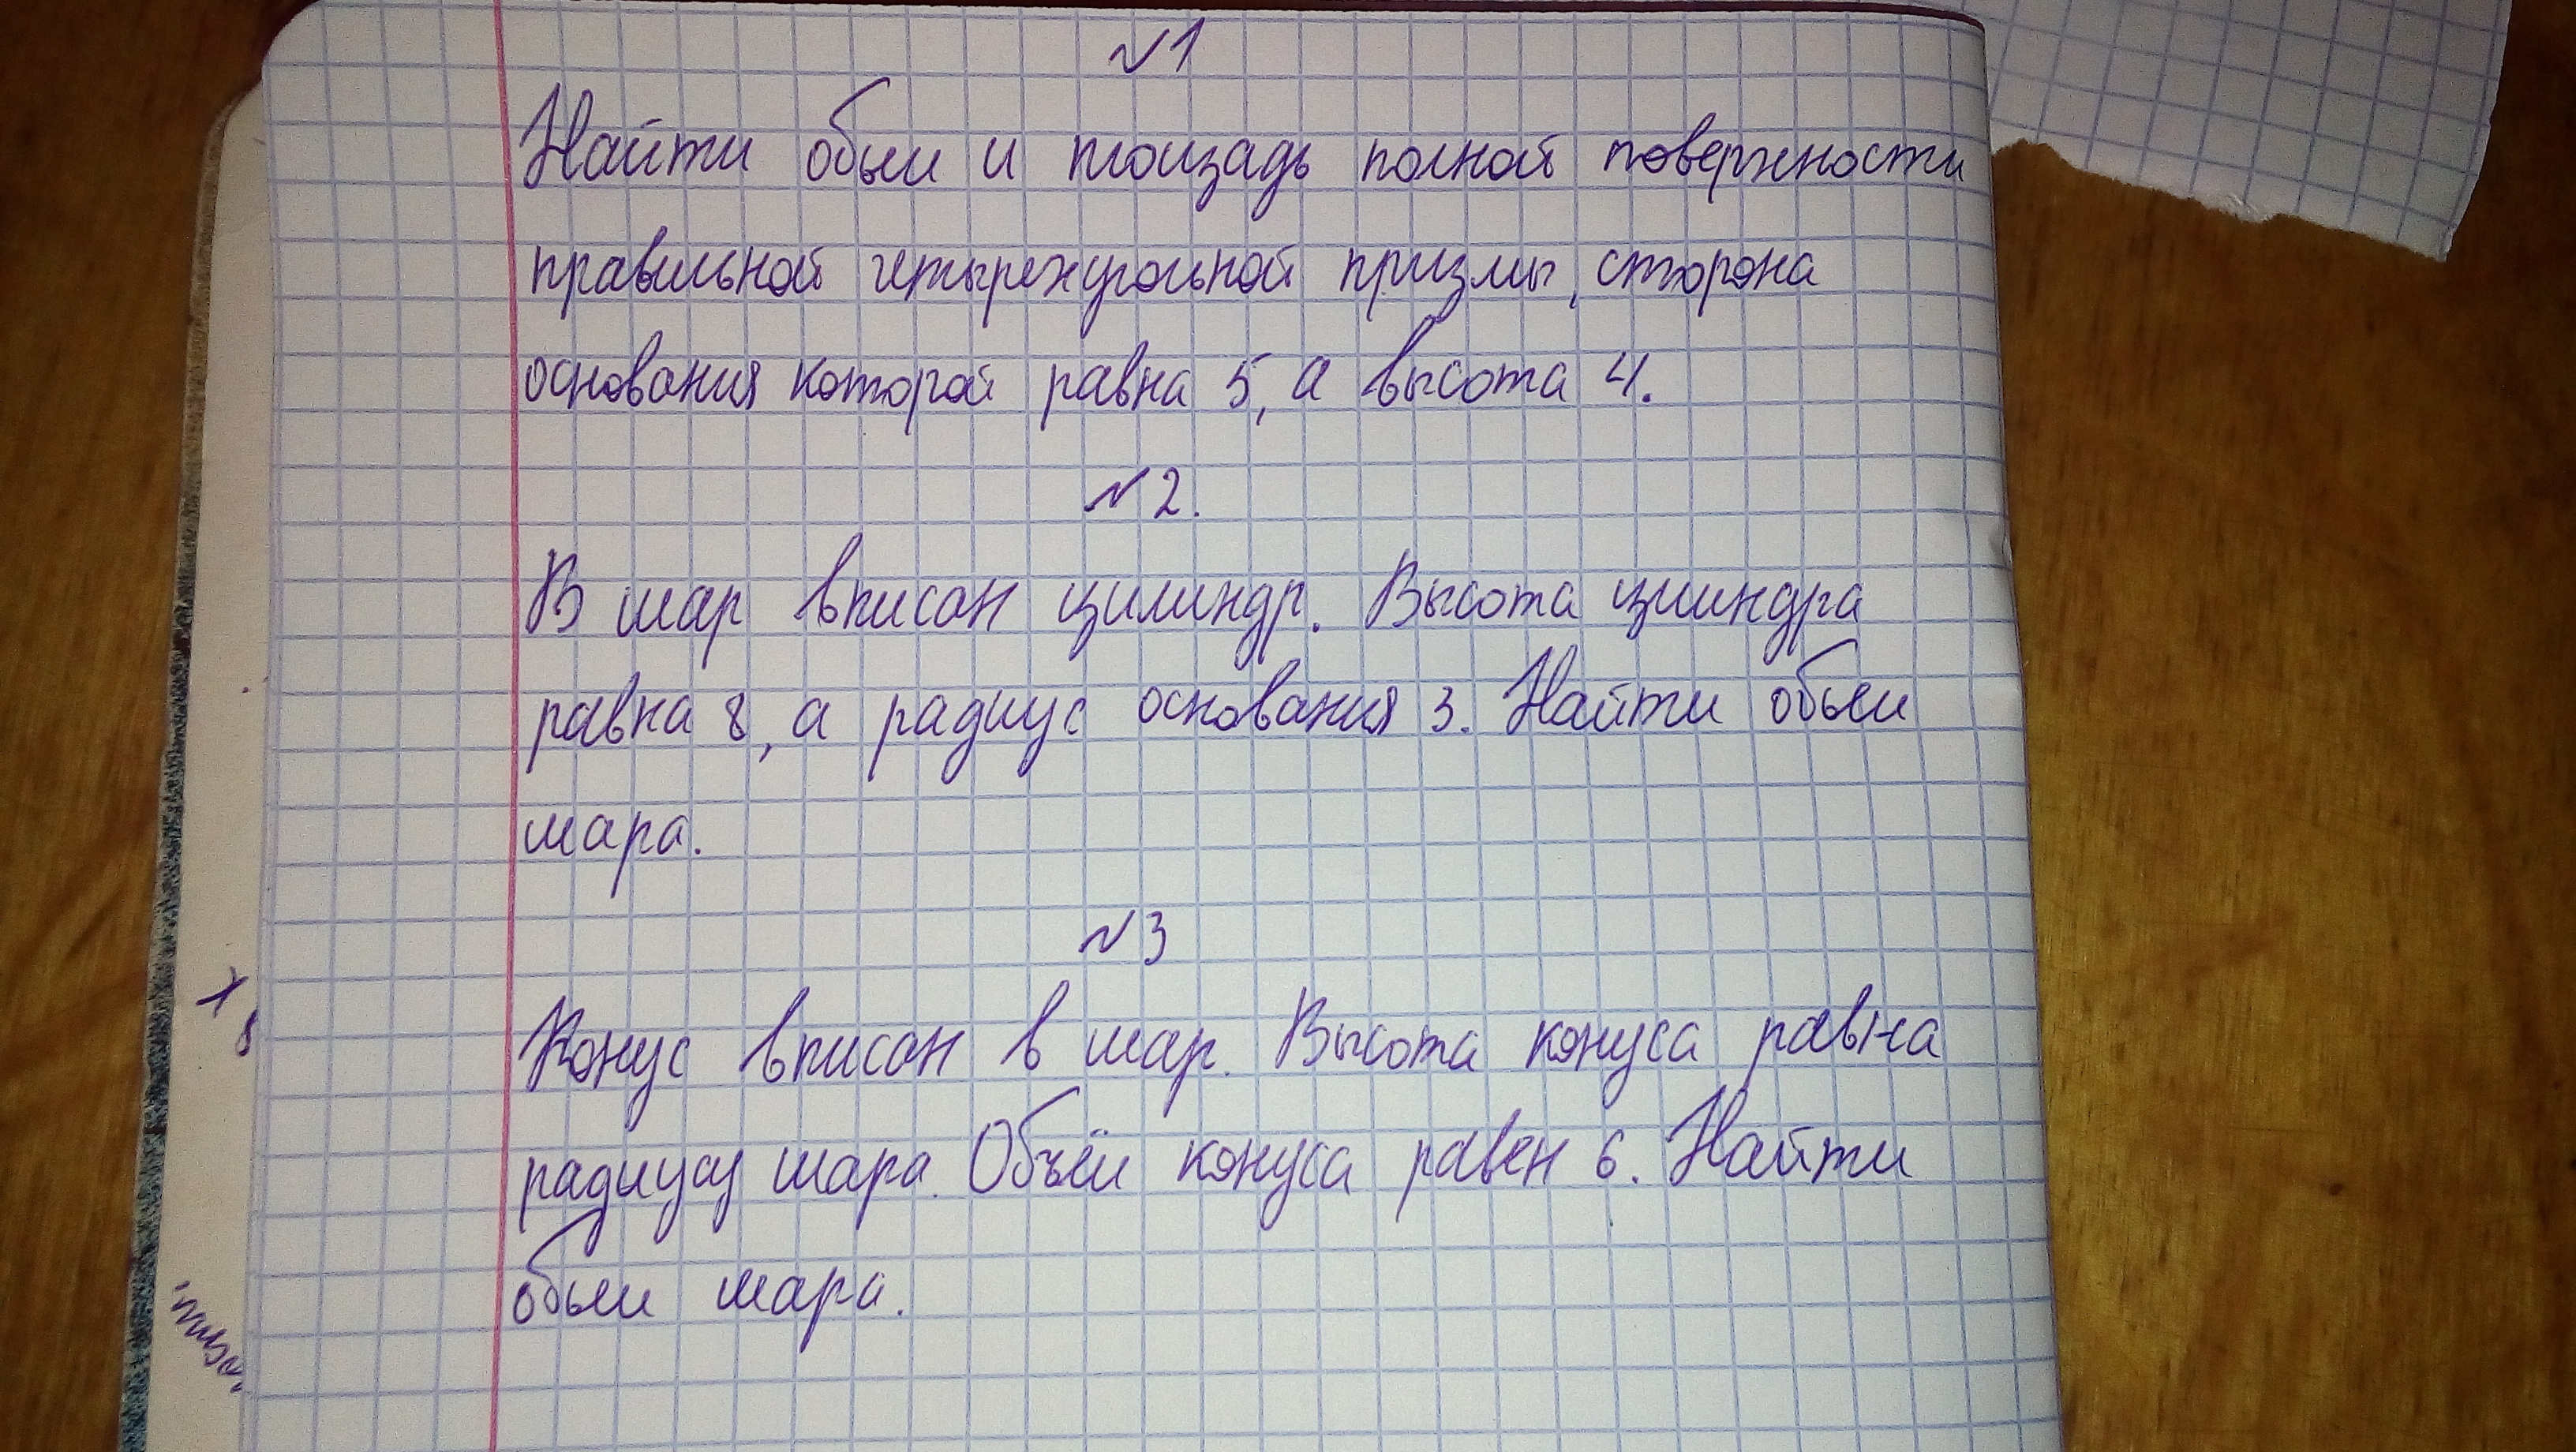 №1
Найти обьем и площадь полной поверхности
правильной четырехугольной призмы, сторона
основания которой равна 5, а высота 4.
№2.
В шар вписан цилиндр. Высота цилиндра
равна 8, а радиус основания 3. Найти обьем
шара.
№3
Конус вписан в шар. Высота конуса равна
радиусу шара. Объём конуса равен 6. Найти
обьем шара.